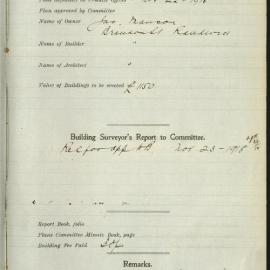 Plan approved by Committee
Name of Owner Jas. Mawson
Brunson St Kenwood
Name of Builder "
Name of Architect "
Value of Buildings to be erected £1150
Building Surveyor's Report to Committee.
Rec for app Nov 23 - 1918
Report Book, folio
Plans Committee Minute Book, page
Building Fee Paid 30/-
Remarks.